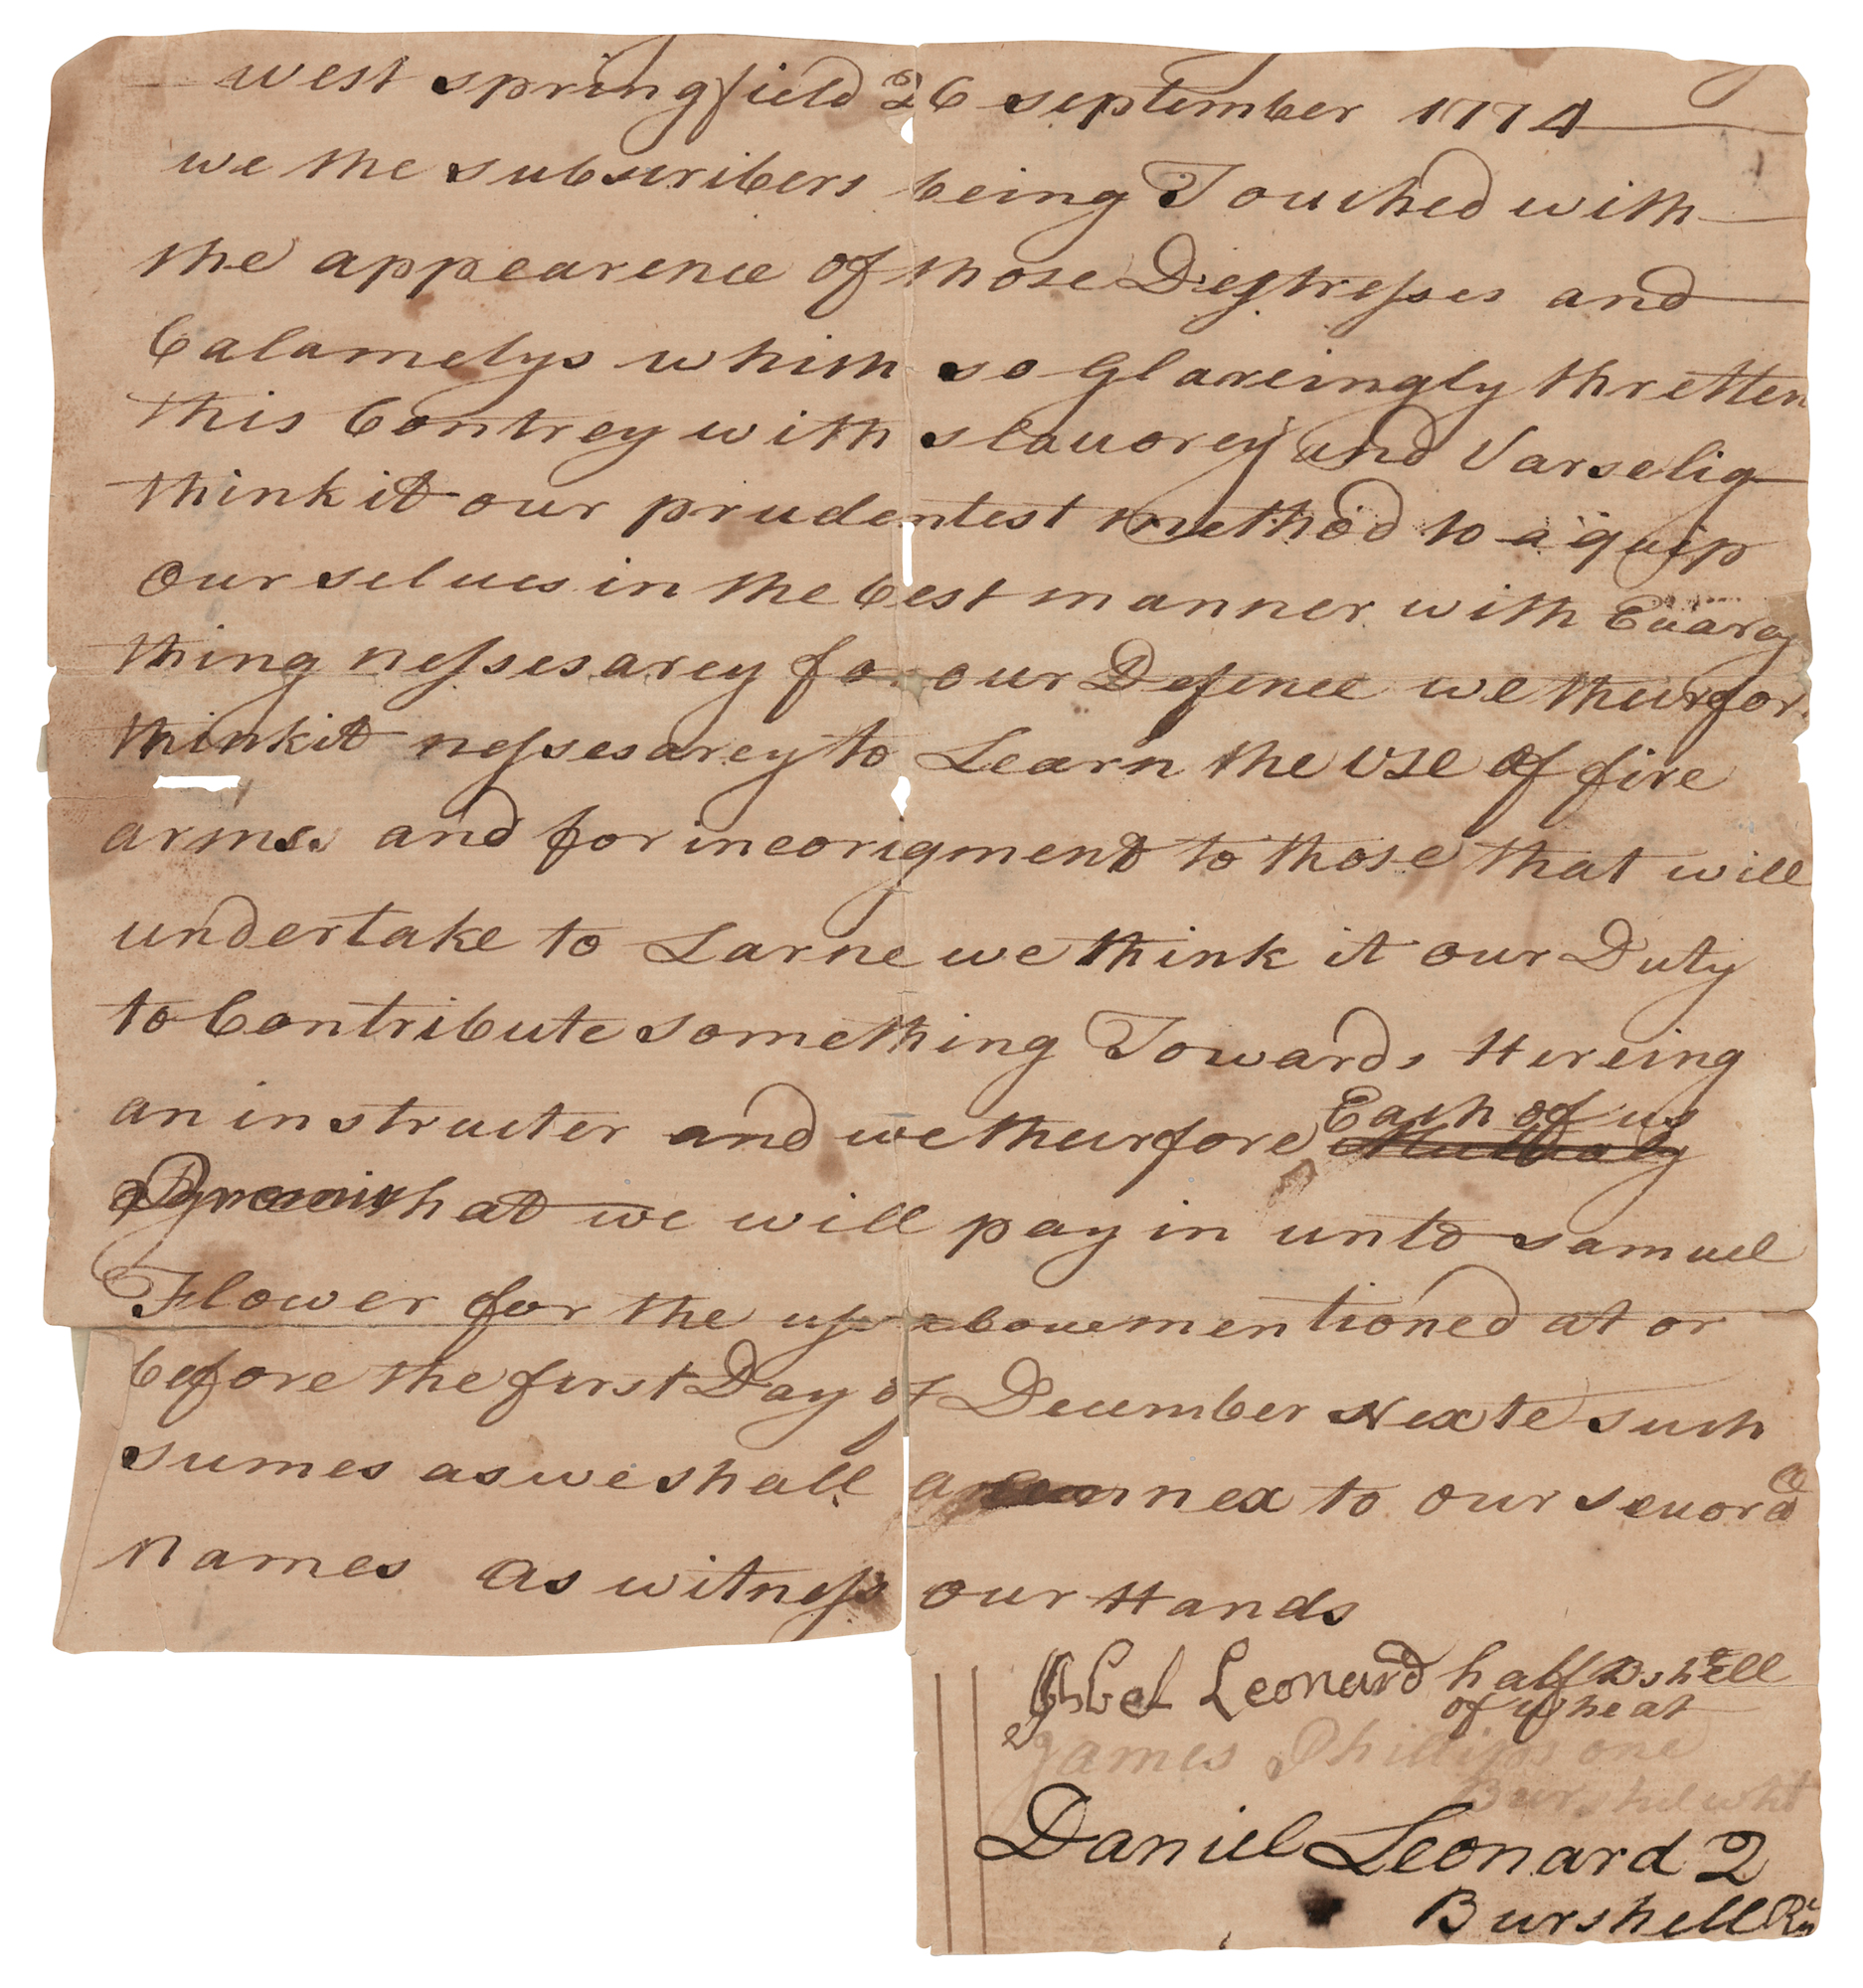 west springfield 26 september 1774
we the subscribers being Touched with
the appearence of those Distresses and
Calametys which so Glareingly thretten
this Contrey with slauorey and Varselig
think it our prudentest method to aquip
our selues in the best manner with Euarey
thing nessesarey for our Defence we theurfor
think it nessesarey to Learn the use of fire
arms and for incorigment to those that will
undertake to Larne we think it our Duty
to Contribute something Towards Hireing
an instructer and we theurfore Each of us
that we will pay in unto samuel
Flower for the use aboue mentioned at or
before the first Day of December Nexte such
sumes as we shall annex to our seuord
names as witness our Hands
Abel Leonard half Bshell
of wheat
James Phillips one
Burshel wht
Daniel Leonard 2
Burshell Ry